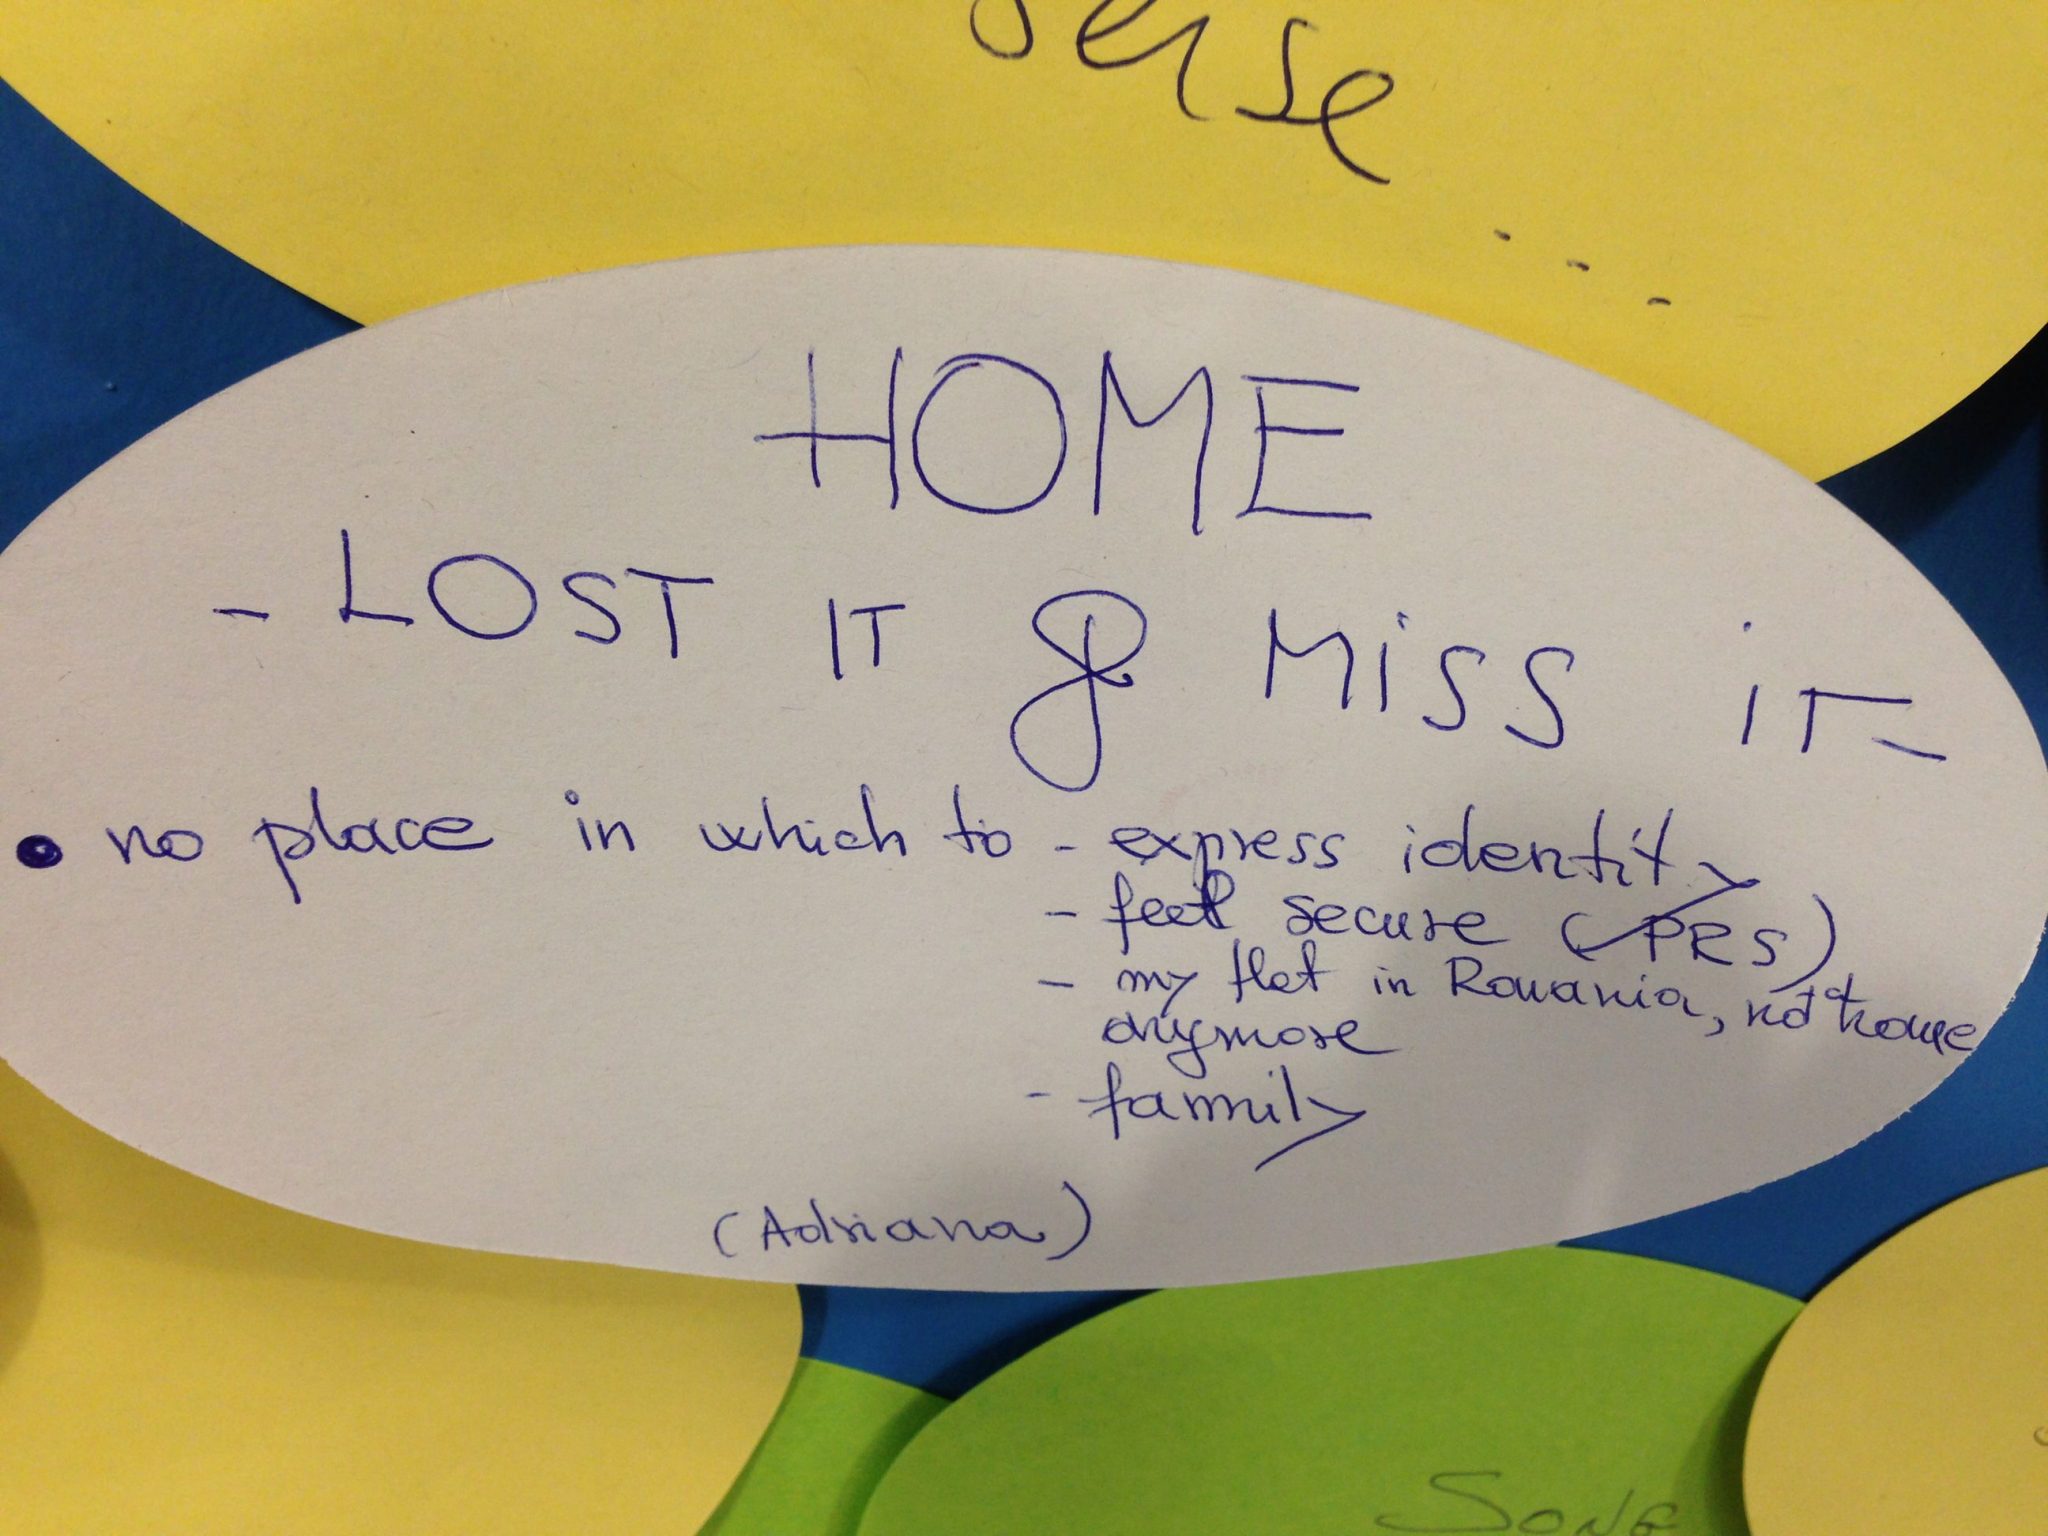 sense
...
HOME
- LOST IT & MISS IT -
• no place in which to - express identity
- feel secure (PRS)
- my flat in Romania, not home
anymore
- family
(Adriana)
SONE